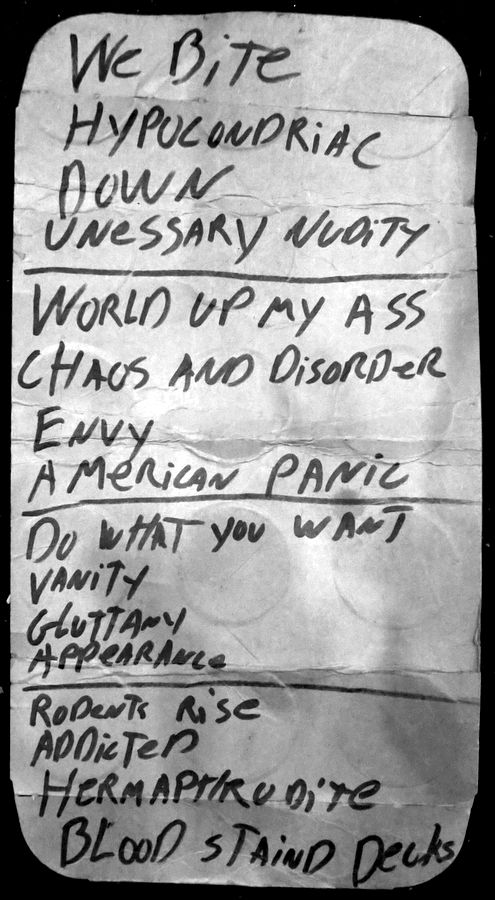 We BiTe
HYPOCONDRiAC
DOWN
UNeSSARY NUDiTY
WORLD UP MY ASS
CHAOS AND DiSORDeR
ENVY
AMeRiCAN PANiC
DO WHAT YOU WANT
VANiTY
GLUTTANY
APPeARANce
RoDeNTs Rise
ADDicTeD
HeRMAPHRODiTe
BLOOD STAiND Decks